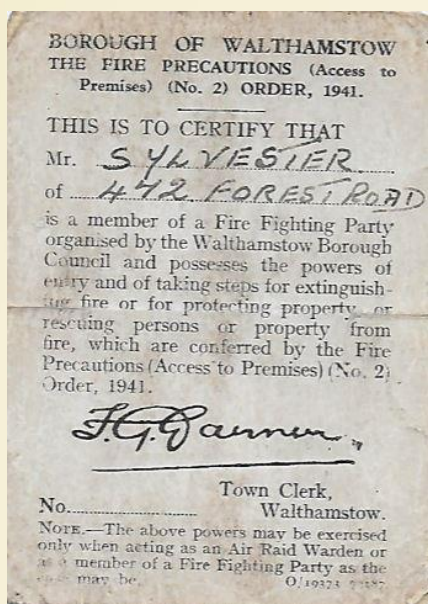 BOROUGH OF WALTHAMSTOW
THE FIRE PRECAUTIONS (Access to
Premises) (No. 2) ORDER, 1941.
THIS IS TO CERTIFY THAT
Mr. SYLVESTER
of 472 FOREST ROAD
is a member of a Fire Fighting Party
organised by the Walthamstow Borough
Council and possesses the powers of
entry and of taking steps for extinguish-
ing fire or for protecting property, or
rescuing persons or property from
fire, which are conferred by the Fire
Precautions (Access to Premises) (No. 2)
Order, 1941.
Town Clerk,
No. Walthamstow.
NOTE.—The above powers may be exercised
only when acting as an Air Raid Warden or
as a member of a Fire Fighting Party as the
case may be.